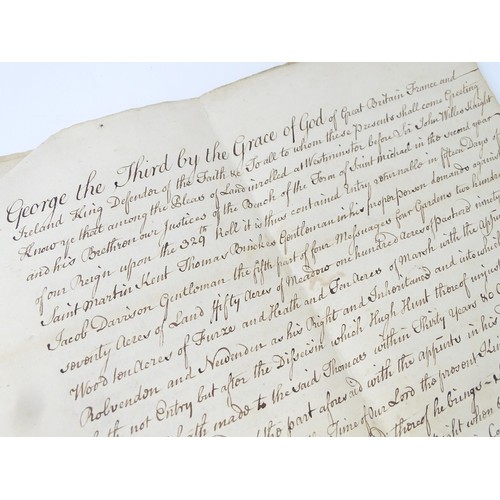 George the Third by the Grace of God of Great Britain France and
Ireland King Defender of the Faith &c To all to whom these Presents shall come Greeting
Know ye that among the Pleas of Land inrolled at Westminster before Sir John Willes Knight
and his Brethren our Justices of the Bench of the Term of Saint Michael in the second year
of our Reign upon the 329th Roll it is thus contained Entry returnable in fifteen Days of
Saint Martin Kent Thomas Gentleman in his proper person demands against
Jacob Davison Gentleman the fifth part of four Messuages four Gardens two hundred
seventy Acres of Land fifty Acres of Meadow one hundred Acres of Pasture ninety
Wood ten Acres of Furze and Heath and Ten Acres of Marsh with the
Rolvenden and Newenden as his Right and Inheritance and into which
hath not Entry but after the Disseisin which Hugh Hunt thereof
hath made to the said Thomas within Thirty Years &
the part aforesaid with the appurts in his
Time of our Lord the present
thereof he brings